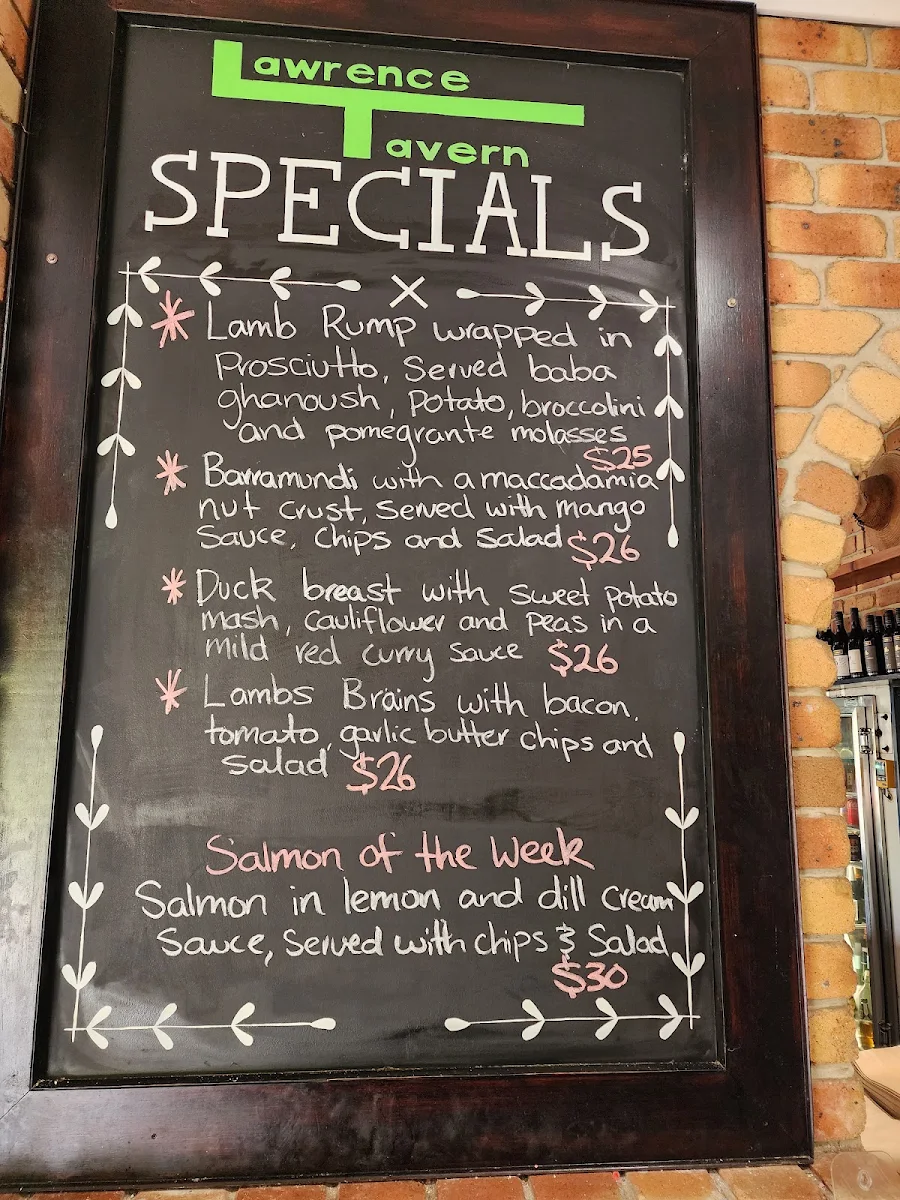 Lawrence
Tavern
SPECIALS
* Lamb Rump wrapped in
Prosciutto, Served baba
ghanoush, Potato, broccolini
and pomegrante molasses
$25
* Barramundi with a maccadamia
nut crust, Served with mango
Sauce, Chips and Salad $26
* Duck breast with sweet potato
mash, Cauliflower and Peas in a
mild red curry Sauce $26
* Lambs Brains with bacon,
tomato, garlic butter chips and
salad $26
Salmon of the Week
Salmon in lemon and dill cream
Sauce, Served with chips & Salad
$30